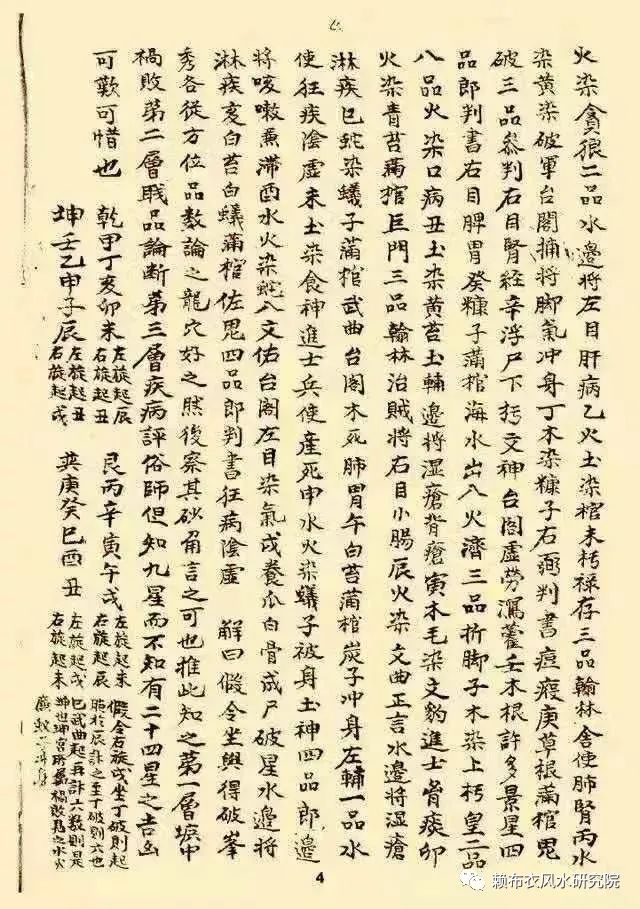 火染貪狼二品水邊將左目肝病乙火土染棺未朽祿存三品翰林舍使肺腎丙水
染黃染破軍台閣捕將脚氣冲身丁木染糠子右弼判書痘疫庚草根滿棺
破三品參判右目腎経辛浮尸下朽文神台閣虛劳瀉藿壬木根許多景星四
品郎判書右目脾胃癸糠子滿棺海水出八火濟三品折脚子木染上朽皇二品
八品火染口病丑土染黃苔土輔邊將湿瘡背瘡寅木毛染文豹進士骨痰卯
火染青苔滿棺巨門三品翰林治賊將右目小腸辰火染文曲正言水邊將湿瘡
淋疾巳蛇染蟻子滿棺武曲台閣木死肺胃午白苔滿棺炭子冲身左輔一品水
使狂疾陰虛未土染食神進士兵使產死申水火染蟻子被身土神四品郎邊
將咳嗽痞滯酉水火染蛇八文佑台閣左目染氣戌養瓜白骨成尸破星水邊將
淋疾亥白苔白蟻滿棺佐鬼四品郎判書狂病陰虛 解曰假令坐與得破峯
秀各從方位品数論之龍穴好之然後察其砂角言之可也推此知之第一層壙中
禍敗第二層職品論断第三層疾病評俗師但知九星而不知有二十四星之吉凶
可歎可惜也
乾甲丁亥卯未 左旋起辰
右旋起丑
坤壬乙申子辰 左旋起丑
右旋起戌
艮丙辛寅午戌 左旋起未
右旋起辰
巽庚癸巳酉丑 左旋起戌
右旋起未
假令右旋戌坐丁破則起
臨於辰計之至丁破則六也
巳武曲起再計六数則是
坤也坤宮所屬禍敗
4
赖布衣风水研究院